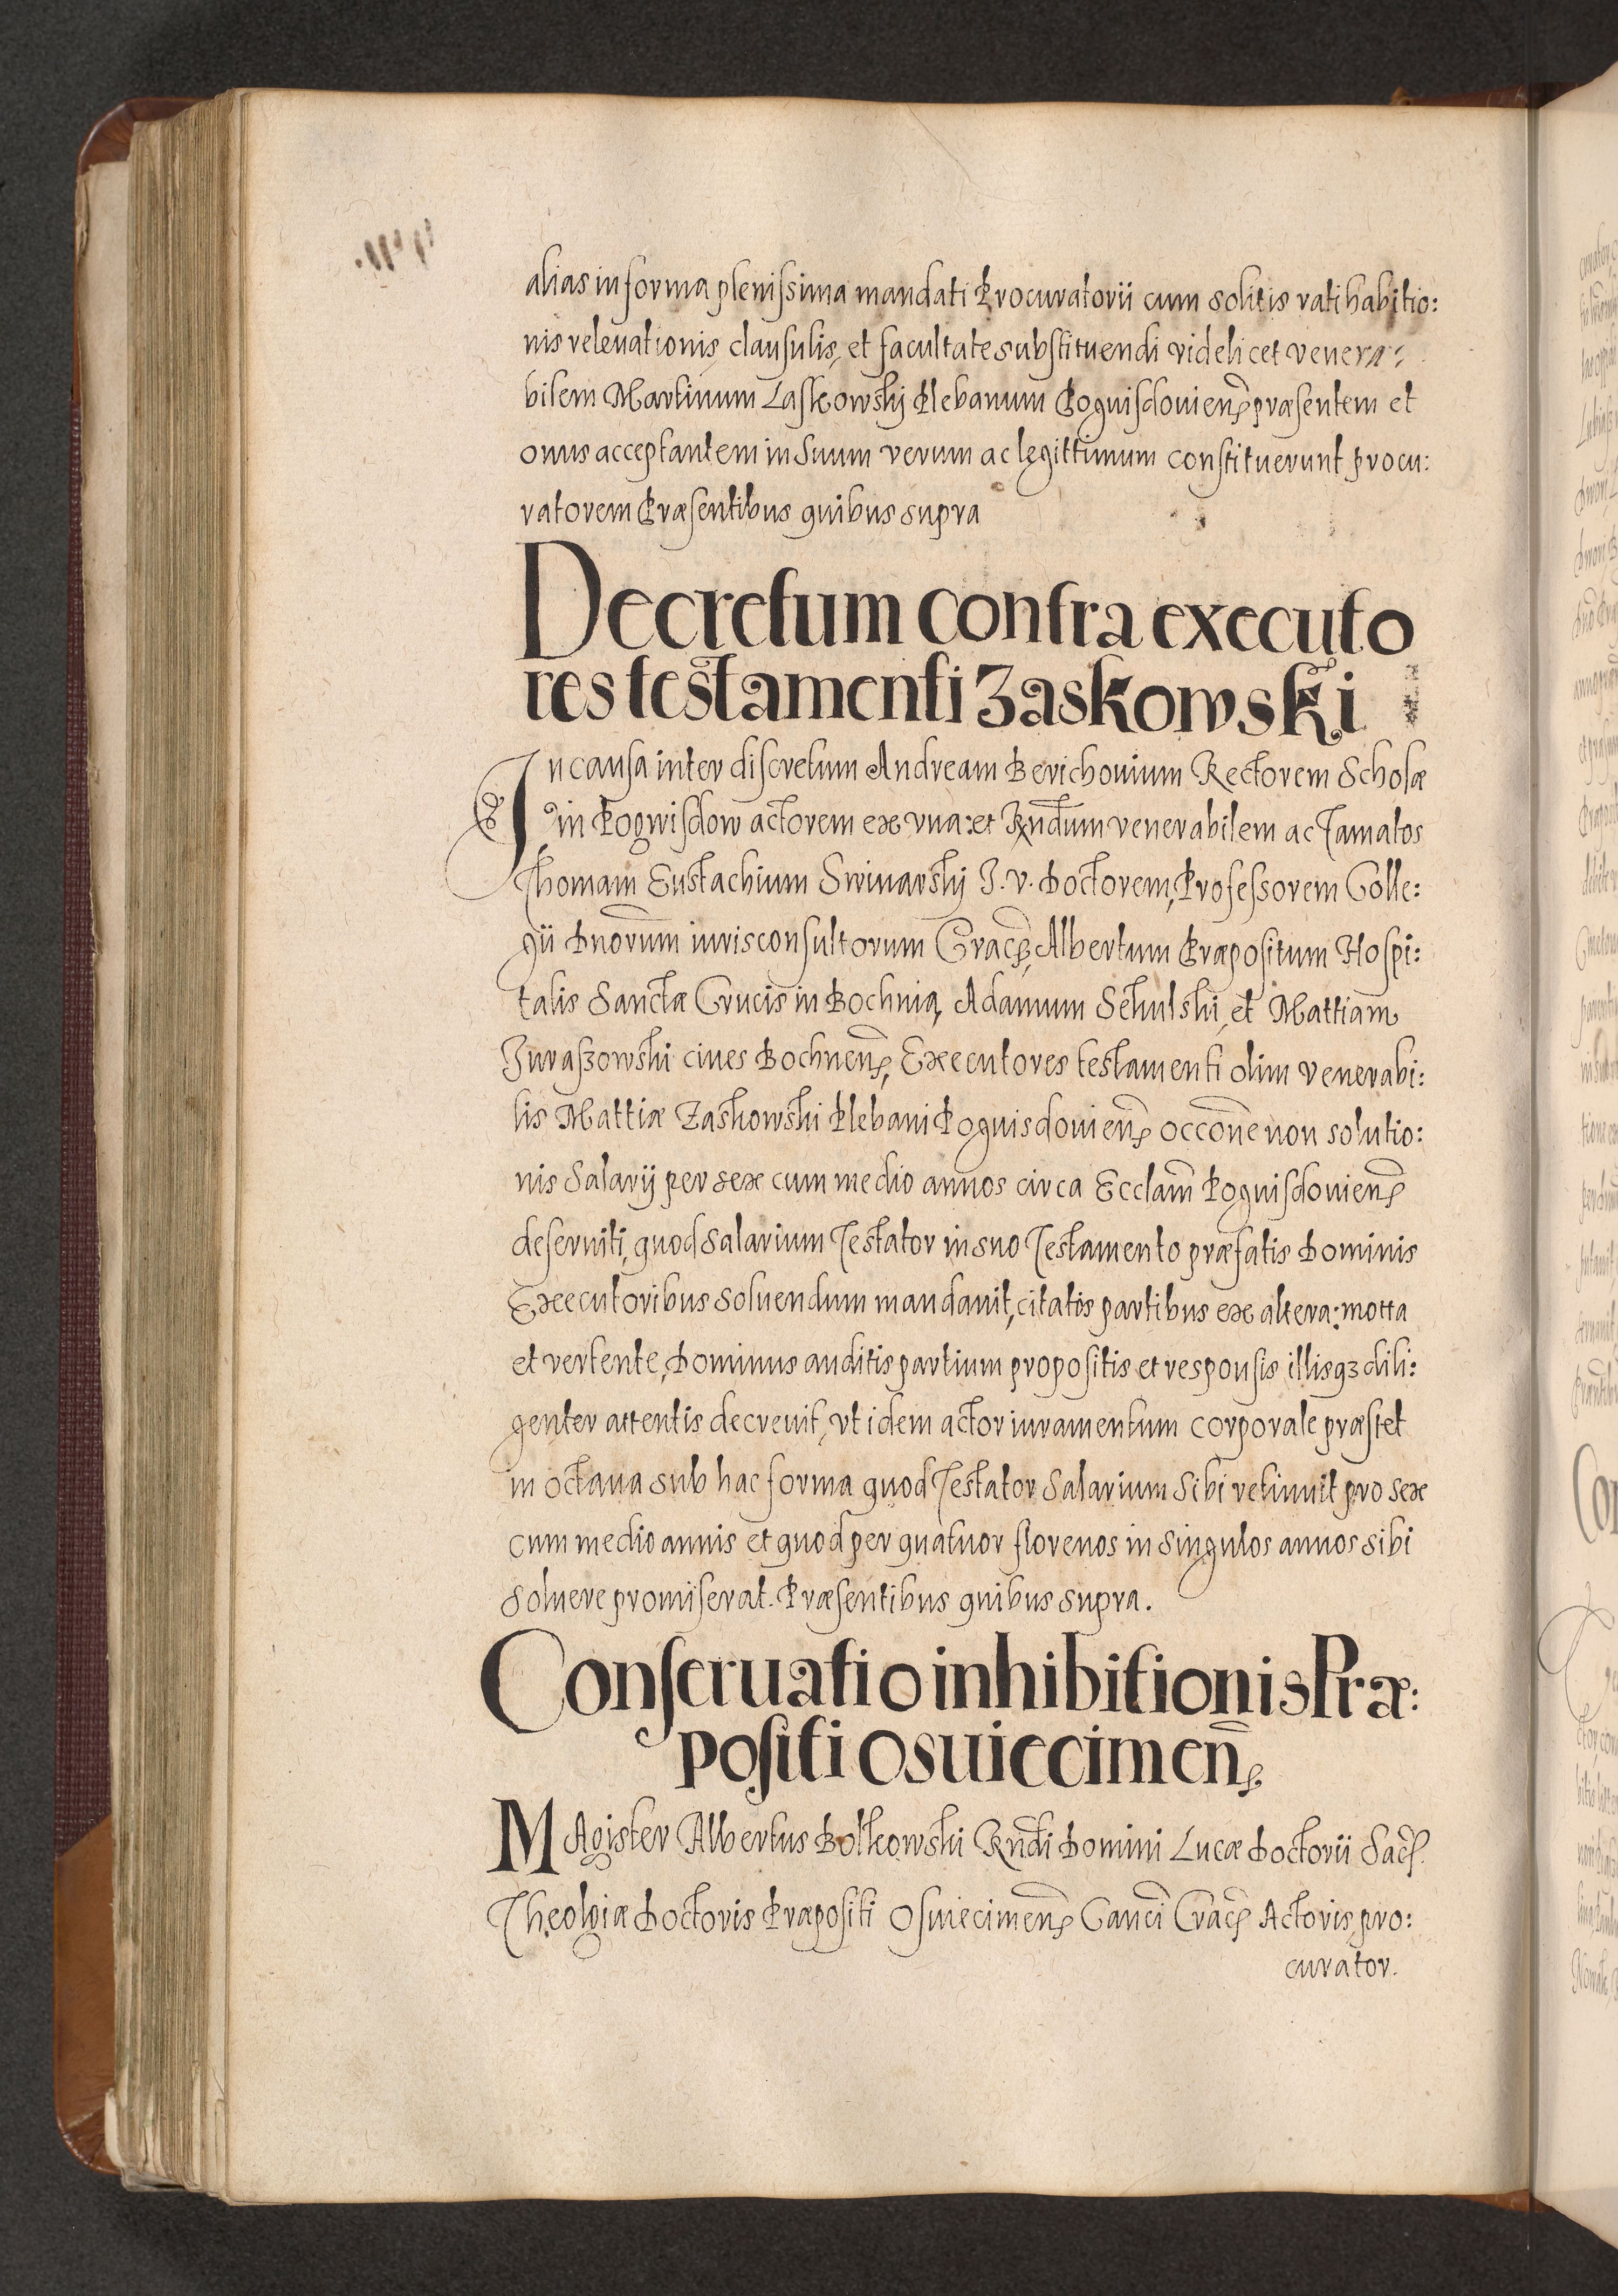 alias in forma plenissima mandati Procuratorii cum solitis ratihabitio:
nis releuationis clausulis, et facultate substituendi videlicet venera:
bilem Martinum Laskowskij Plebanum Poguisdouieñ præsentem et
onus acceptantem in Suum verum ac legittimum constituerunt procu:
ratorem Præsentibus quibus supra
Decretum contra executo
res testamenti Zaskowski
In causa inter discretum Andream Berichouium Rectorem Scholæ
in Pogwisdow actorem ex vna: et Rñdum venerabilem ac famatos
Thomam Eustachium Swinarskij J. v. Doctorem, Professorem Colle:
gii Dnorum iurisconsultorum Crac̃, Albertum Præpositum Hospi:
talis Sanctæ Crucis in Bochnia, Adamum Sekulski, et Mattiam
Juraszowski ciues Bochneñ, Executores testamenti olim venerabi:
lis Mattiæ Zaskowski Plebani Poguisdouieñ occõne non solutio:
nis Salarij per sex cum medio annos circa Ecclam̃ Poguisdouieñ
deseruiti, quod salarium Testator in suo Testamento præfatis Dominis
Executoribus soluendum mandauit, citatos partibus ex altera: motta
et vertente, Dominus auditis partium propositis et responsis illisqz dili:
genter attentis decreuit, vt idem actor iuramentum corporale præstet
in octaua sub hac forma quod Testator Salarium Sibi retinuit pro sex
cum medio annis et quod per quatuor florenos in Singulos annos sibi
Soluere promiserat. Præsentibus quibus supra.
Conseruatio inhibitionis Præ:
positi Osuieccimeñ
MAgister Albertus Bolkowski Rñdi Domini Lucæ Doctorii Sac̃
Theologiæ Doctoris Præpositi Osuiecimeñ Canci Crac̃ Actoris, pro:
curator.